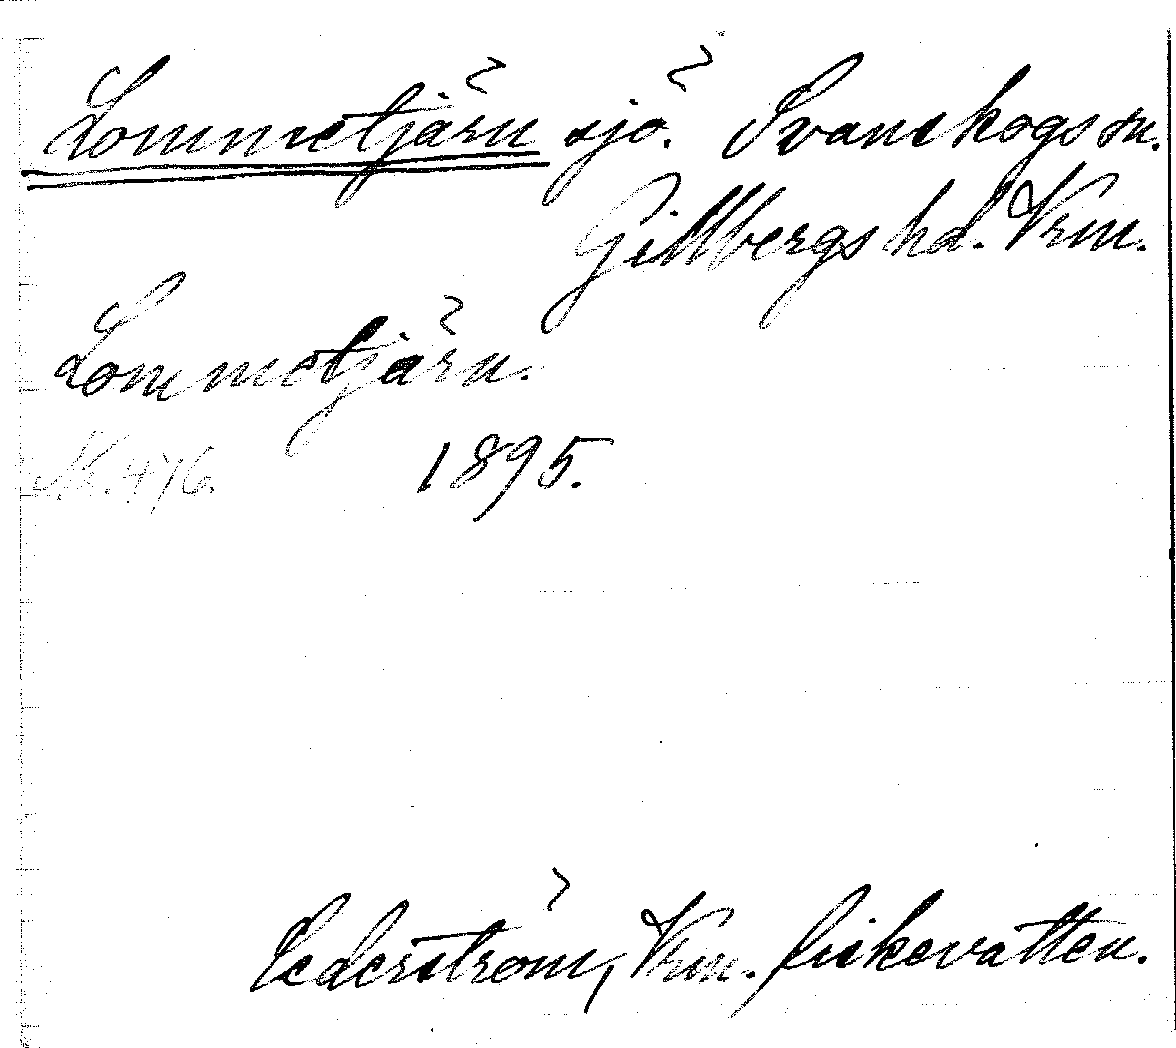 Lommetjärn sjö. Svanskogs sn.
Gillbergs hd. Vrm.
Lommetjärn.
Nr. 476. 1895.
Cederström, Vrm. fiskevatten.